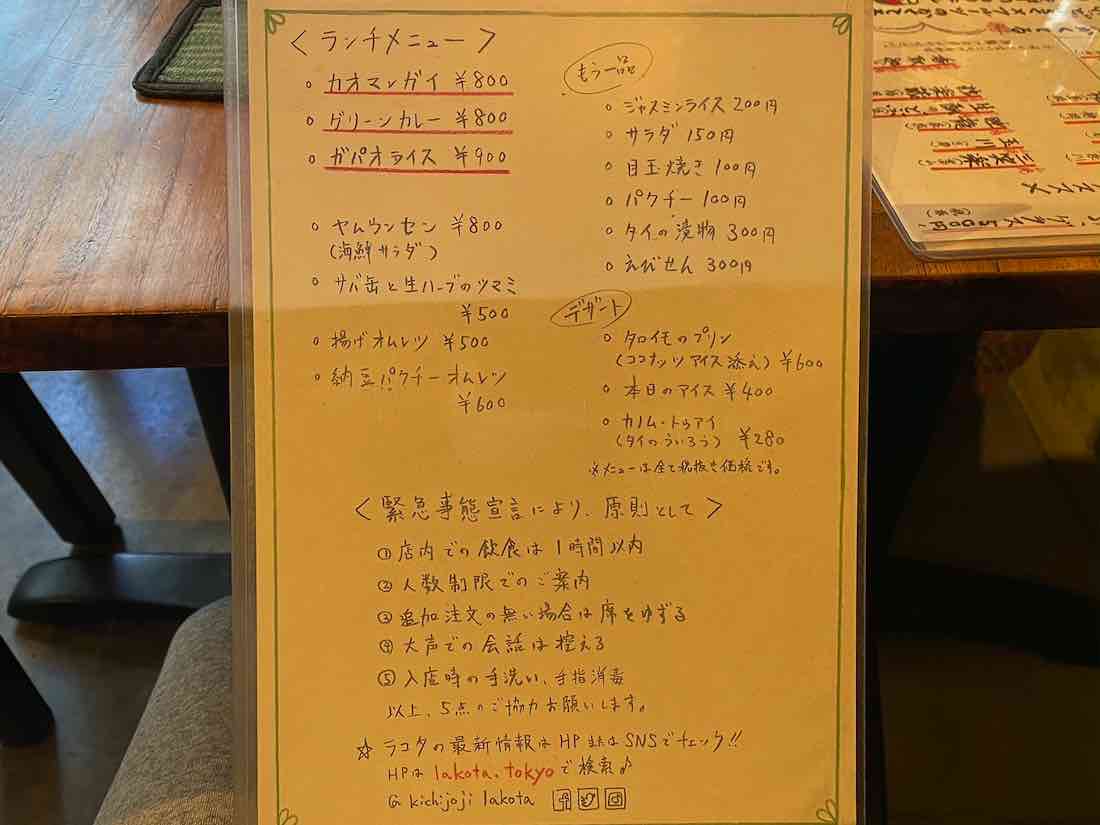 <ランチメニュー>
○ カオマンガイ ¥800
○ グリーンカレー ¥800
○ ガパオライス ¥900
○ ヤムウンセン ¥800
(海鮮サラダ)
○ サバ缶と生ハーブのツマミ
¥500
○ 揚げオムレツ ¥500
○ 納豆パクチーオムレツ
¥600
もう一品
○ ジャスミンライス 200円
○ サラダ 150円
○ 目玉焼き 100円
○ パクチー 100円
○ タイの漬物 300円
○ えびせん 300円
デザート
○ タロイモのプリン
(ココナッツアイス添え) ¥600
○ 本日のアイス ¥400
○ カノム・トゥアイ
(タイのういろう) ¥280
※メニューは全て税抜き価格です。
<緊急事態宣言により、原則として>
① 店内での飲食は1時間以内
② 人数制限でのご案内
③ 追加注文の無い場合は席をゆずる
④ 大声での会話は控える
⑤ 入店時の手洗い、手指消毒
以上、5点のご協力お願いします。
☆ ラコタの最新情報はHPまたはSNSでチェック!!
HPは lakota.tokyo で検索♪
@ kichijoji lakota